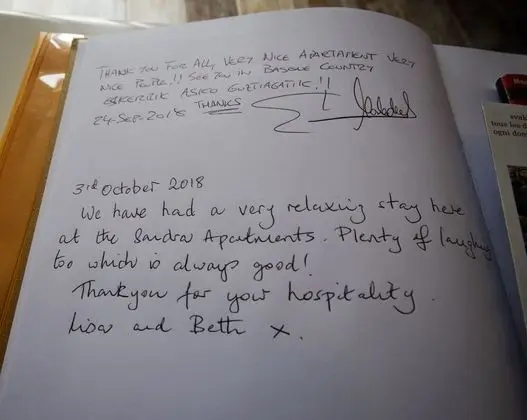 THANK YOU FOR ALL, VERY NICE APARTAMENT VERY
NICE PEOPLE!! SEE YOU IN BASQUE COUNTRY
ESKERRIK ASKO GUZTIAGATIK!!
24-SEP-2018 THANKS
3rd October 2018
We have had a very relaxing stay here
at the Sandra Apartments. Plenty of laughs
too which is always good!
Thankyou for your hospitality.
Lisa and Beth x.
tous les d
ogni dom